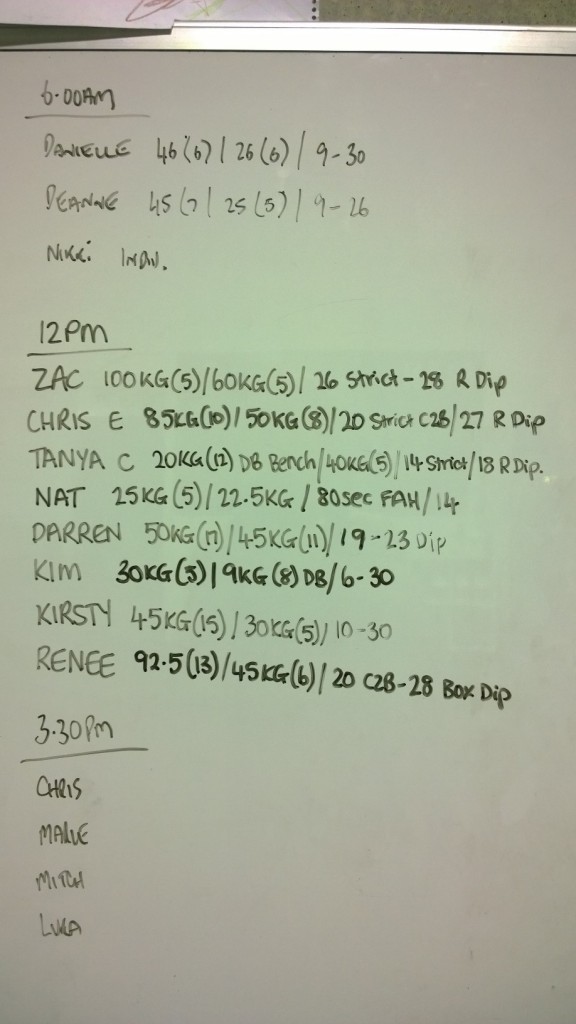 6.00AM
DANIELLE 46(6) | 26(6) | 9-30
DEANNE 45(7 | 25(5) | 9-26
NIKKI INDIV.
12PM
ZAC 100KG(5)/60KG(5)/ 26 Strict - 28 R Dip
CHRIS E 85KG(10)/50KG(8)/20 Strict C2B/27 R Dip
TANYA C 20KG(12) DB Bench/40KG(5)/14 Strict/18 R Dip.
NAT 25KG(5)/22.5KG/80sec FAH/14
DARREN 50KG(17)/45KG(11)/19-23 Dip
KIM 30KG(3)/9KG(8)DB/6-30
KIRSTY 45KG(15)/30KG(5)/10-30
RENEE 92.5(13)/45KG(6)/20 C2B-28 Box Dip
3.30PM
CHRIS
MITCH
LUKA